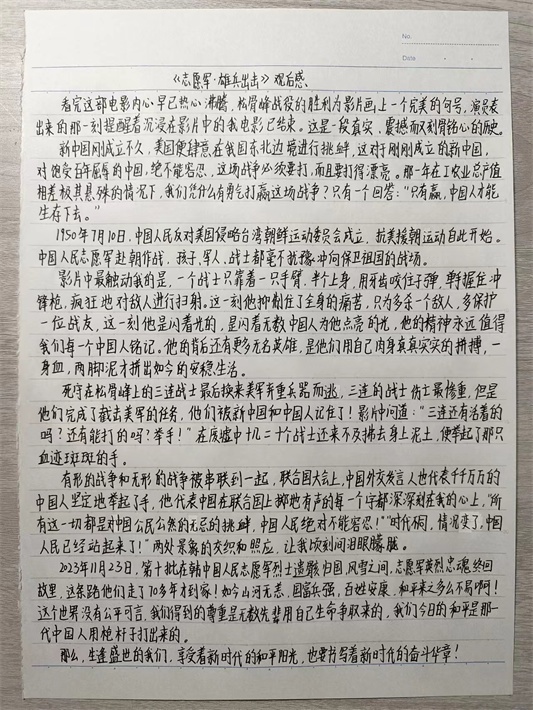 No.
Date
《志愿军·雄兵出击》观后感
看完这部电影内心早已热心沸腾，松骨峰战役的胜利为影片画上一个完美的句号，演员表
出来的那一刻提醒着沉浸在影片中的我电影已结束。这是一段真实，震撼而又刻骨铭心的历史。
新中国刚成立不久，美国便肆意在我国东北边境进行挑衅，这对于刚刚成立的新中国，
对饱受百年屈辱的中国，绝不能容忍，这场战争必须要打，而且要打得漂亮。那一年在工农业总产值
相差极其悬殊的情况下，我们凭什么有勇气打赢这场战争？只有一个回答：“只有赢，中国人才能
生存下去。”
1950年7月10日，中国人民反对美国侵略台湾朝鲜运动委员会成立，抗美援朝运动自此开始。
中国人民志愿军赴朝作战，孩子，军人，战士都毫不犹豫冲向保卫祖国的战场。
影片中最触动我的是，一个战士只靠着一只手臂，半个上身，用牙齿咬住子弹，单手握住冲
锋枪，疯狂地对敌人进行扫射。这一刻他抑制住了全身的痛苦，只为多杀一个敌人，多保护
一位战友，这一刻他是闪着光的，是闪着无数中国人为他点亮的光，他的精神永远值得
我们每一个中国人铭记。他的背后还有更多无名英雄，是他们用自己肉身真真实实的拼搏，一
身血，两脚泥才拼出如今的安稳生活。
死守在松骨峰上的三连战士最后换来美军弃重兵器而逃，三连的战士伤亡最惨重，但是
他们完成了截击美军的任务，他们被新中国和中国人记住了！影片中问道：“三连还有活着的
吗？还有能打的吗？举手！”在废墟中十几二十个战士还来不及拂去身上泥土，便举起了那只
血迹斑斑的手。
有形的战争和无形的战争被串联到一起，联合国大会上，中国外交发言人也代表千千万万的
中国人坚定地举起了手，他代表中国在联合国上掷地有声的每一个字都深深刻在我的心上，“所
有这一切都是对中国公民公然的无忌的挑衅，中国人民绝对不能容忍！”“时代不同，情况变了，中国
人民已经站起来了！”两处景象的交织和照应，让我顷刻间泪眼朦胧。
2023年11月23日，第十批在韩中国人民志愿军烈士遗骸归国，风雪之间，志愿军英烈忠魂终回
故里，这条路他们走了70多年才到家！如今山河无恙，国富兵强，百姓安康，和平来之多么不易啊！
这个世界没有公平可言，我们得到的尊重是无数先辈用自己生命争取来的，我们今日的和平是那一
代中国人用枪杆子打出来的。
那么，生逢盛世的我们，享受着新时代的和平阳光，也要书写着新时代的奋斗华章！